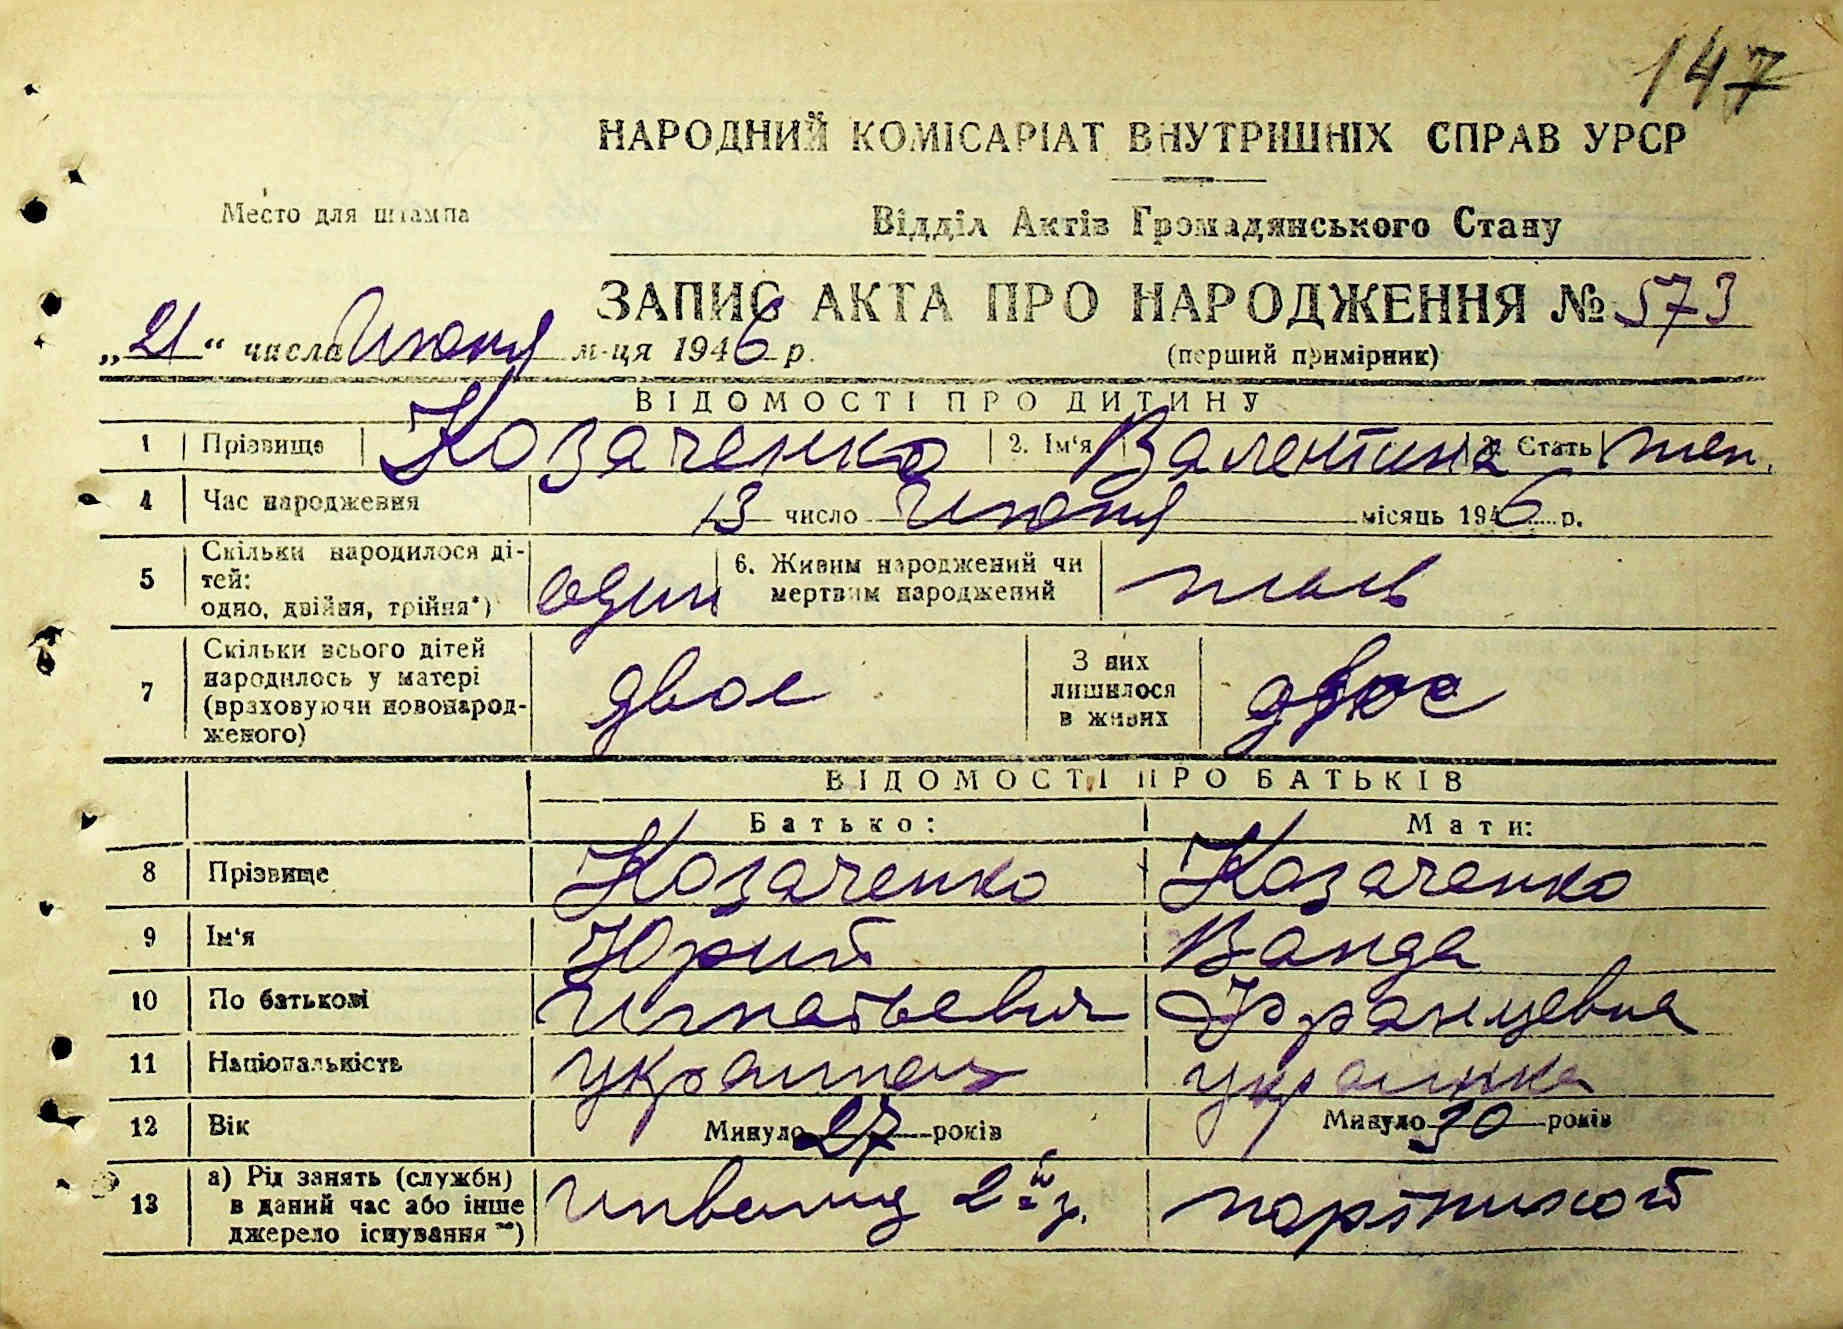 147
НАРОДНИЙ КОМІСАРІАТ ВНУТРІШНІХ СПРАВ УРСР
Место для штампа
Відділ Актів Громадянського Стану
ЗАПИС АКТА ПРО НАРОДЖЕННЯ № 573
„21“ числа Июня м-ця 1946 р.
(перший примірник)
ВІДОМОСТІ ПРО ДИТИНУ
1 Прізвище Козаченко 2. Ім'я Валентина 3. Стать жен.
4 Час народження 13 число Июня місяць 1946 р.
5 Скільки народилося ді-
тей:
одно, двійня, трійня*) один 6. Живим народжений чи
мертвим народжений
7 Скільки всього дітей
народилось у матері
(враховуючи новонарод-
женого) двое З них
лишилося
в живих двое
ВІДОМОСТІ ПРО БАТЬКІВ
Батько: Мати:
8 Прізвище Козаченко Козаченко
9 Ім'я Юрий Ванда
10 По батькові Игнатьевич Францевна
11 Національність украинец украинка
12 Вік Минуло 27 років Минуло 30 років
13 а) Рід занять (служби)
в даний час або інше
джерело існування **) инвалид 2й гр. портнихой